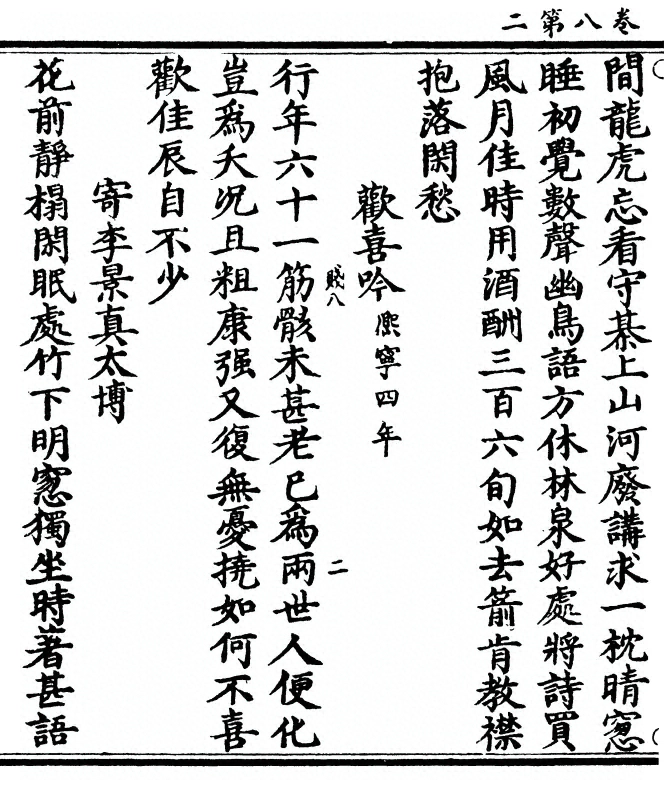 卷八第二
間龍虎忘看守棊上山河廢講求一枕晴窓
睡初覺數聲幽鳥語方休林泉好處將詩買
風月佳時用酒酬三百六旬如去箭肯教襟
抱落閑愁
歡喜吟熙寧四年
賤八 二
行年六十一筋骸未甚老已爲兩世人便化
豈爲夭况且粗康强又復無憂撓如何不喜
歡佳辰自不少
寄李景真太博
花前靜榻閑眠處竹下明窓獨坐時著甚語